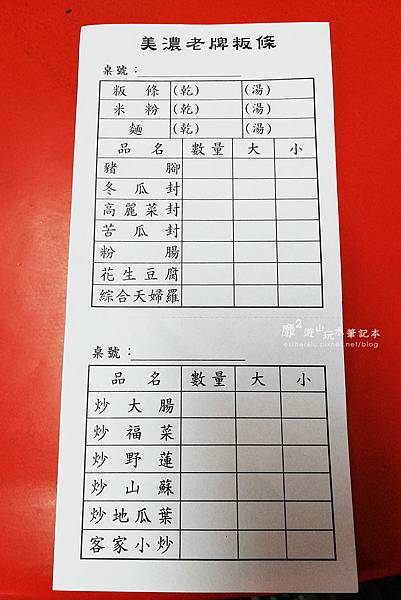 美濃老牌粄條
桌號：
粄條 (乾) (湯)
米粉 (乾) (湯)
麵 (乾) (湯)
品名 數量 大 小
豬腳
冬瓜封
高麗菜封
苦瓜封
粉腸
花生豆腐
綜合天婦羅
靡2遊山玩水筆記本
estherslu.pixnet.net/blog
桌號：
品名 數量 大 小
炒大腸
炒福菜
炒野蓮
炒山蘇
炒地瓜葉
客家小炒